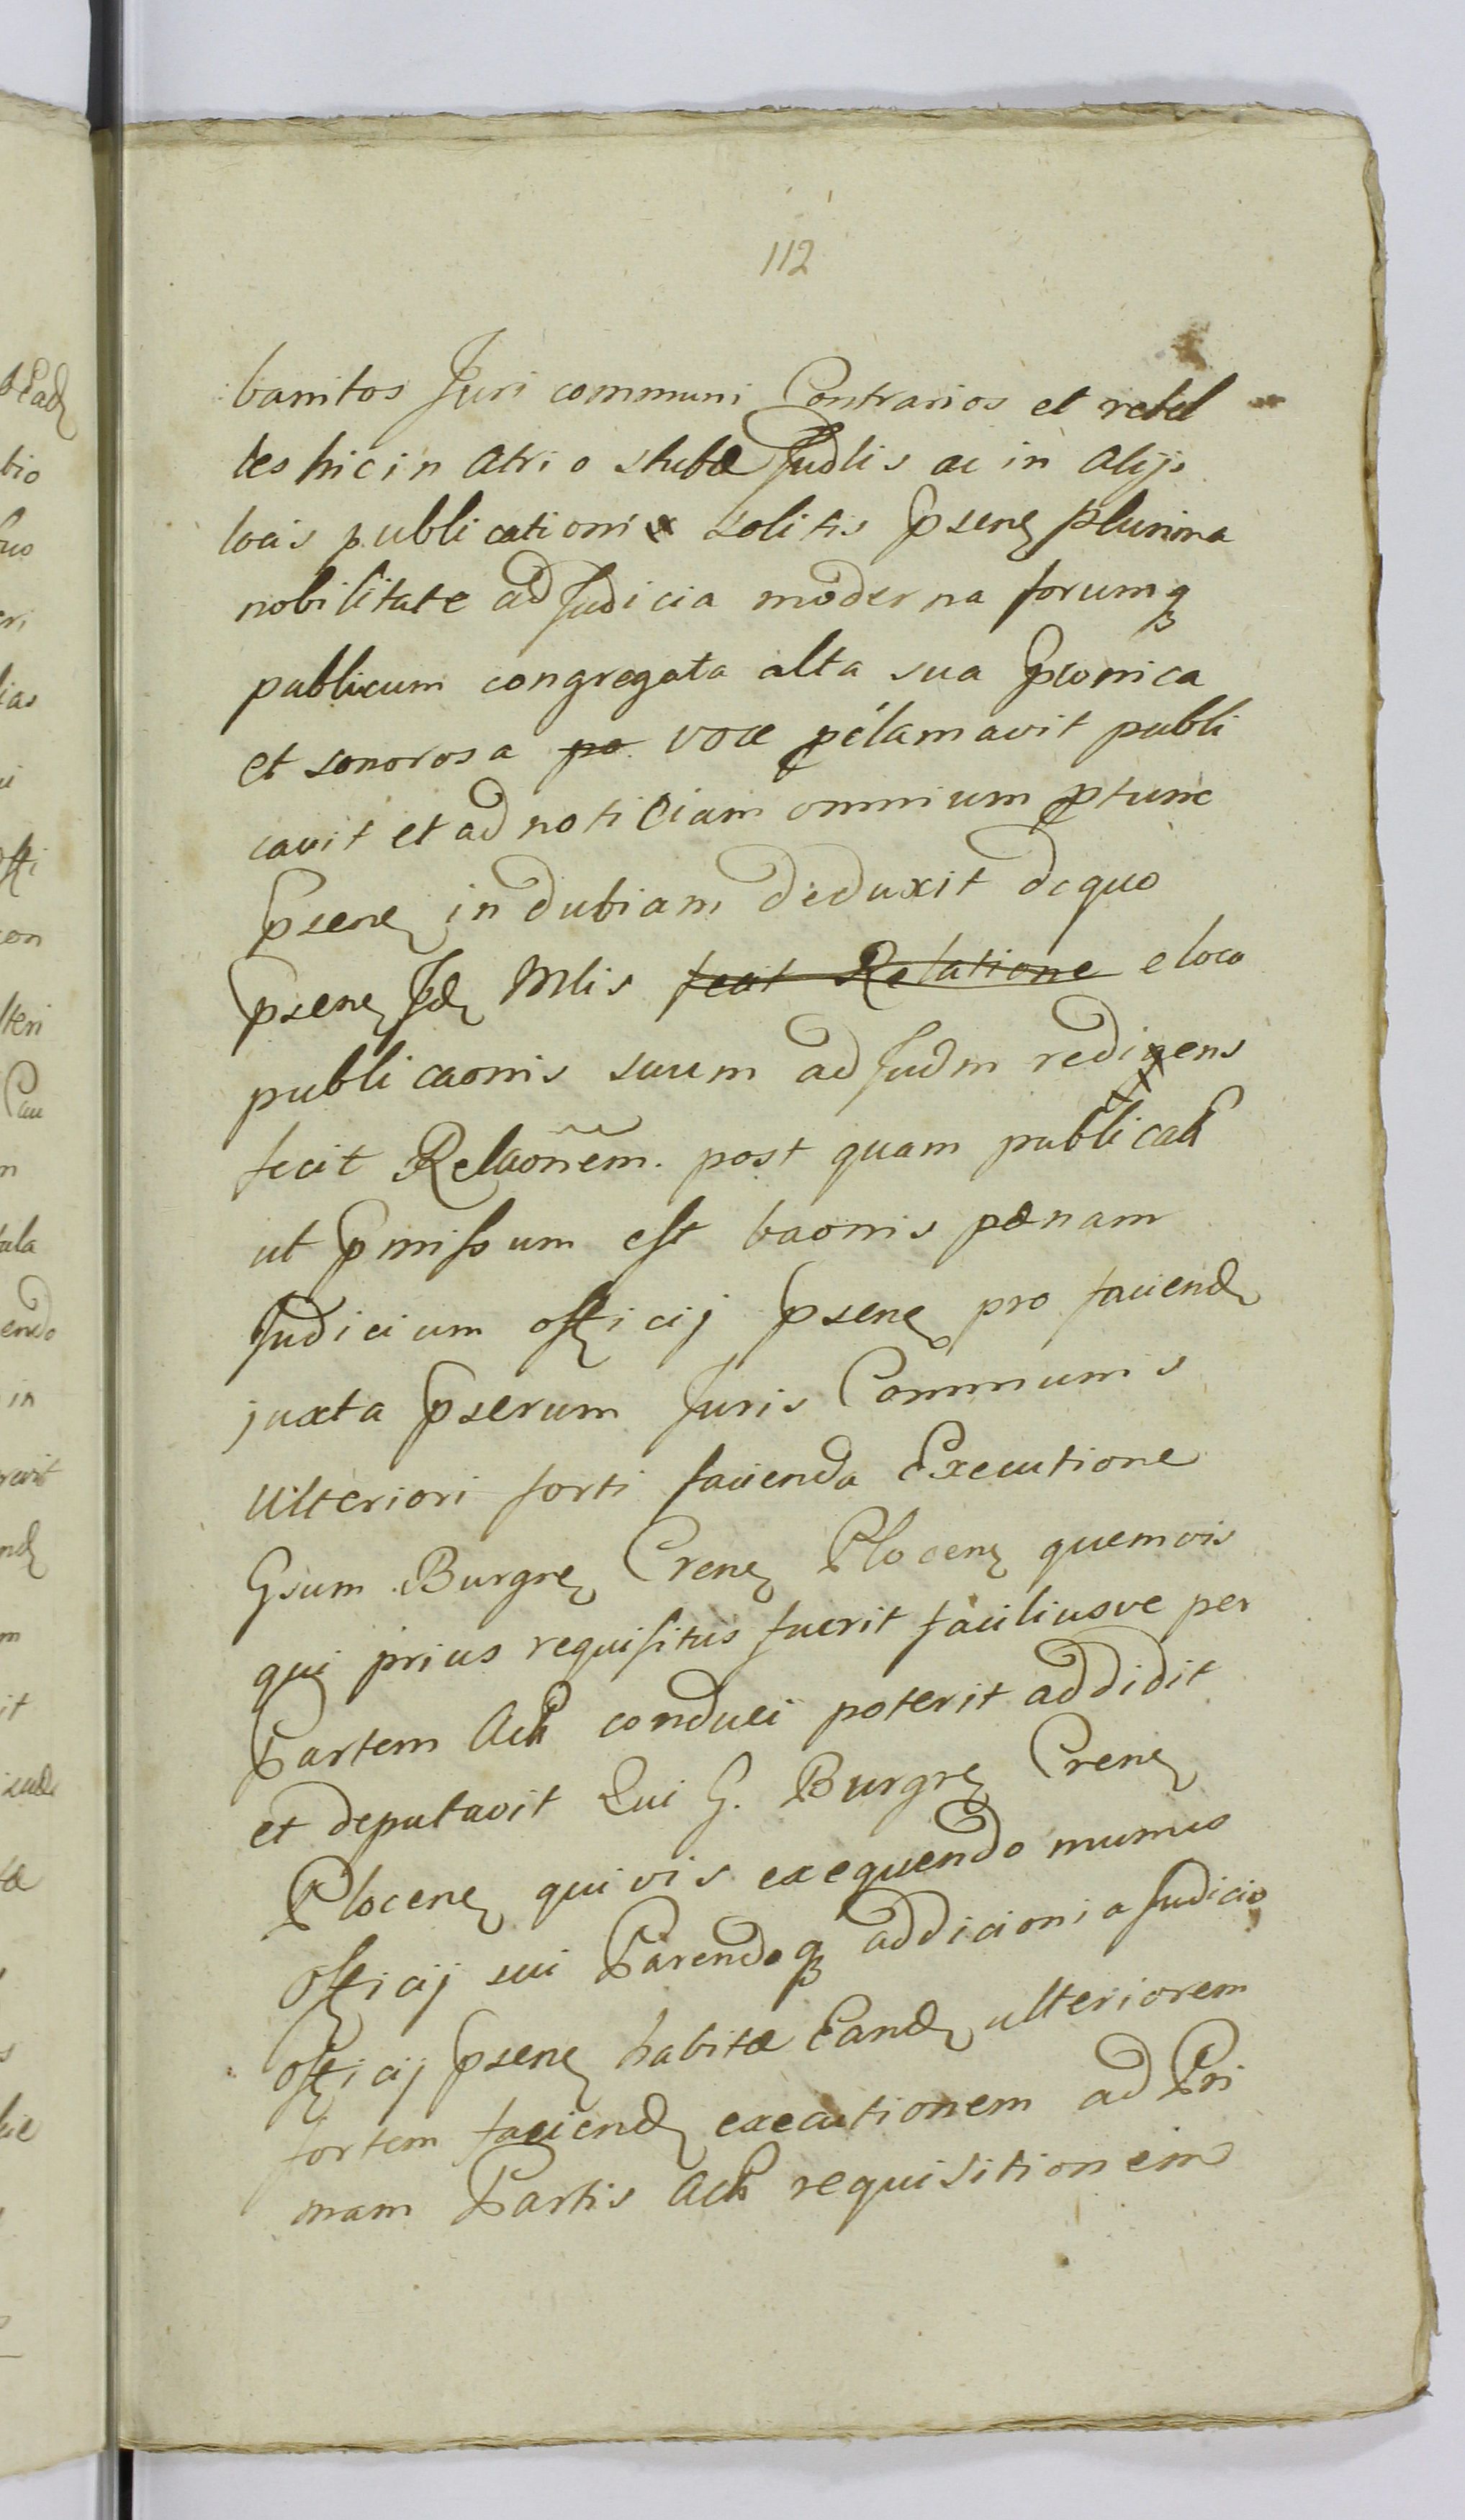 112
banitos Juri communi Contrarios et rebel
les hic in Atrio stubæ Judlis ac in Alijs
locis publicationi solitis psene plurima
nobilitate ad Judicia moderna forumq
publicum congregata alta sua pconica
et sonorosa po voce pclamavit publi
cavit et ad noticiam omnium ptunc
psene indubiam deduxit de quo
psene Jde Mlis fecit Relatione e loco
publicaonis suum ad Judm rediens
fecit Relaonem. post quam publicat
ut pmissum est baonis pænam
Judicium officij psene pro faciend
juxta pserum Juris Communis
Ulteriori forti facienda Executione
Gsum Burgre Crene Plocene quemvis
qui prius requisitus fuerit faciliusve per
Partem Act conduci poterit addidit
et deputavit Qui G. Burgre Crene
Plocene quivis exequendo munus
Officij sui Parendoq addicioni a Judicio
Officij psene habitæ Eand ulteriorem
fortem faciend executionem ad Pri
mam Partis Act requisitionem